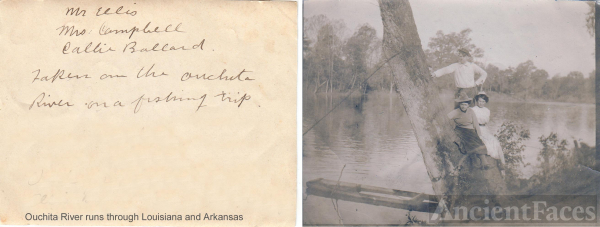 Mr Ellis
Mrs. Campbell
Callie Ballard.
Taken on the ouchita
River on a fishing trip.
Ouchita River runs through Louisiana and Arkansas
AncientFaces